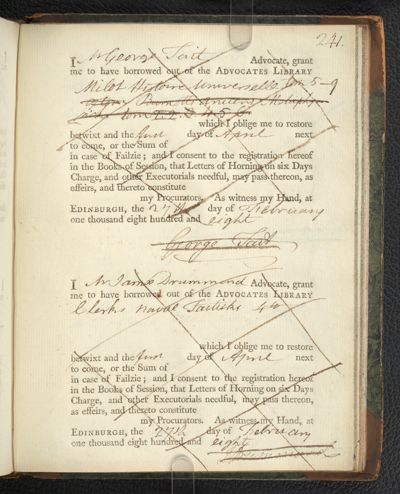 241.
I Mr George Tait Advocate, grant
me to have borrowed out of the ADVOCATES LIBRARY
Milot Histoire Universelle tom 5-9
which I oblige me to restore
betwixt and the first day of April next
to come, or the Sum of
in case of Failzie; and I consent to the registration hereof
in the Books of Session, that Letters of Horning on six Days
Charge, and other Executorials needful, may pass thereon, as
effeirs, and thereto constitute
my Procurators. As witness my Hand, at
EDINBURGH, the 27th day of February
one thousand eight hundred and eight
George Tait
I Mr James Drummond Advocate, grant
me to have borrowed out of the ADVOCATES LIBRARY
Clerks Naval Tacticks 4to
which I oblige me to restore
betwixt and the first day of April next
to come, or the Sum of
in case of Failzie; and I consent to the registration hereof
in the Books of Session, that Letters of Horning on six Days
Charge, and other Executorials needful, may pass thereon,
as effeirs, and thereto constitute
my Procurators. As witness my Hand, at
EDINBURGH, the 27th day of February
one thousand eight hundred and eight